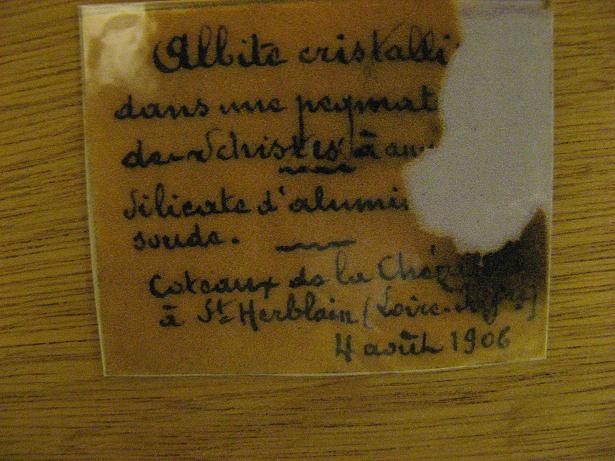 Albite cristalli
dans une pegmat
des Schistes à am
Silicate d'alumi
soude.
Coteaux de la
à St Herblain (Loire-Infre)
4 août 1906